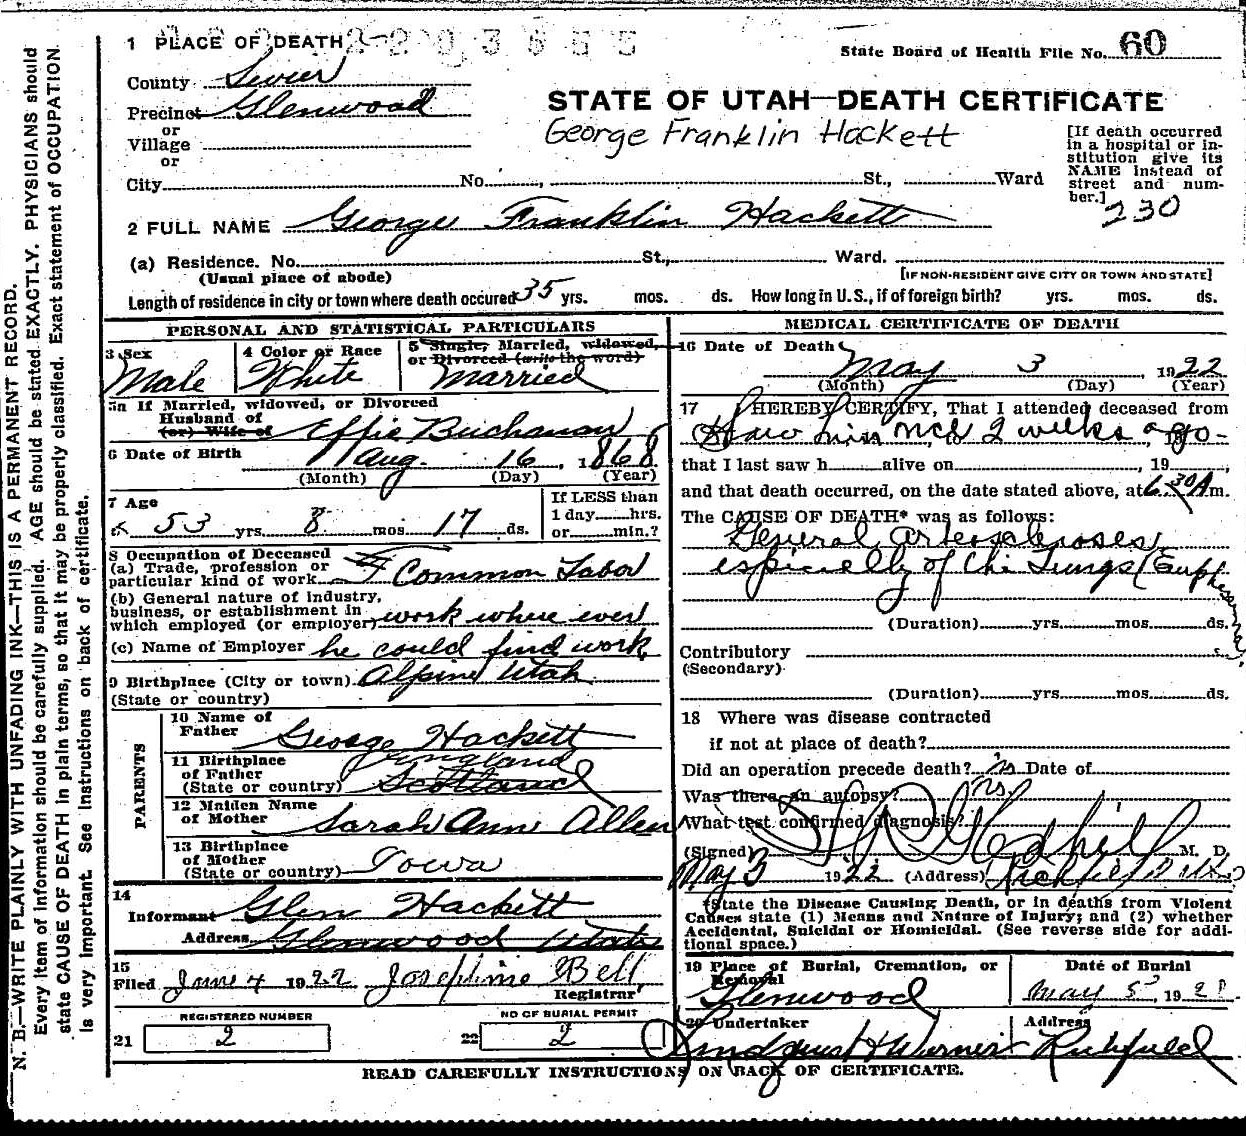 1 PLACE OF DEATH 2203555
State Board of Health File No. 60
County Sevier
Precinct Glenwood
or
Village
or
City No. , St., Ward
STATE OF UTAH—DEATH CERTIFICATE
George Franklin Hackett
[If death occurred
in a hospital or in-
stitution give its
NAME instead of
street and num-
ber.]
230
2 FULL NAME George Franklin Hackett
(a) Residence. No. St., Ward.
(Usual place of abode)
[IF NON-RESIDENT GIVE CITY OR TOWN AND STATE]
Length of residence in city or town where death occured 35 yrs. mos. ds. How long in U.S., if of foreign birth? yrs. mos. ds.
PERSONAL AND STATISTICAL PARTICULARS
3 Sex
Male
4 Color or Race
White
5 Single, Married, widowed,
or Divorced (write the word)
Married
5a If Married, widowed, or Divorced
Husband of
(or) Wife of Effie Buchanan
6 Date of Birth Aug. 16, 1868
(Month) (Day) (Year)
7 Age
53 yrs. 8 mos 17 ds.
If LESS than
1 day hrs.
or min.?
8 Occupation of Deceased
(a) Trade, profession or
particular kind of work Common Labor
(b) General nature of industry,
business, or establishment in
which employed (or employer) work where ever
(c) Name of Employer he could find work
9 Birthplace (City or town) Alpine Utah
(State or country)
PARENTS
10 Name of
Father George Hackett
11 Birthplace
of Father England
(State or country) Scotland
12 Maiden Name
of Mother Sarah Ann Allen
13 Birthplace
of Mother
(State or country) Iowa
14
Informant Glen Hackett
Address Glenwood Utah
15
Filed June 4 1922 Josephine Bell
Registrar
REGISTERED NUMBER
21 2
NO OF BURIAL PERMIT
22 2
MEDICAL CERTIFICATE OF DEATH
16 Date of Death
May 3, 1922
(Month) (Day) (Year)
17 I HEREBY CERTIFY, That I attended deceased from
Saw him 2 weeks ago-
that I last saw h alive on , 19 ,
and that death occurred, on the date stated above, at 6.30 A m.
The CAUSE OF DEATH* was as follows:
General Arterosclerosis
especially of the Lungs (Emphesema
(Duration) yrs. mos. ds.
Contributory
(Secondary)
(Duration) yrs. mos. ds.
18 Where was disease contracted
if not at place of death?
Did an operation precede death? no Date of
Was there an autopsy? no.
What test confirmed diagnosis?
(Signed) M. D.
May 3 1922 (Address) Richfield Utah
*State the Disease Causing Death, or in deaths from Violent
Causes state (1) Means and Nature of Injury; and (2) whether
Accidental, Suicidal or Homicidal. (See reverse side for addi-
tional space.)
19 Place of Burial, Cremation, or
Removal
Glenwood
Date of Burial
May 5, 192
20 Undertaker
Lindquist
Address
Richfield
READ CAREFULLY INSTRUCTIONS ON BACK OF CERTIFICATE.
N. B.—WRITE PLAINLY WITH UNFADING INK—THIS IS A PERMANENT RECORD.
Every item of information should be carefully supplied. AGE should be stated EXACTLY. PHYSICIANS should
state CAUSE OF DEATH in plain terms, so that it may be properly classified. Exact statement of OCCUPATION
is very important. See instructions on back of certificate.